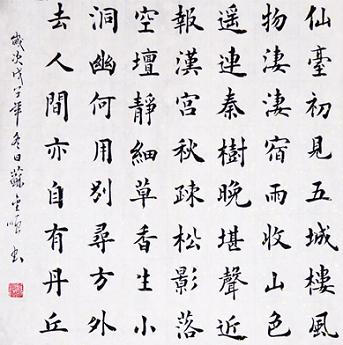 仙臺初見五城樓風
物淒淒宿雨收山色
遥連秦樹晚堪聲近
報漢宮秋疎松影落
空壇靜細草香生小
洞幽何用别尋方外
去人間亦自有丹丘
歲次戊子年冬日蘇書